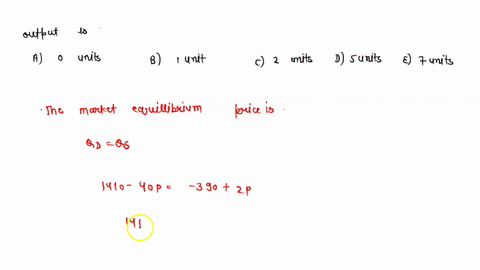 output is :
A) 0 units B) 1 unit C) 2 units D) 5 units E) 7 units
. The market equillibrium price is .
QD = QS
1410 - 40p = -390 + 2p
141